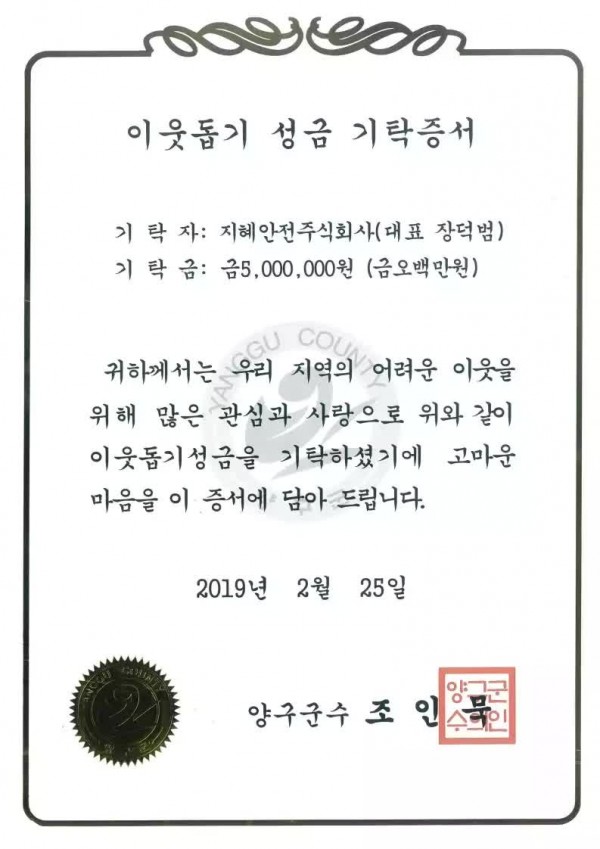 이웃돕기 성금 기탁증서
기 탁 자: 지혜안전주식회사(대표 장덕범)
기 탁 금: 금5,000,000원 (금오백만원)
YANGGU COUNTY
귀하께서는 우리 지역의 어려운 이웃을
위해 많은 관심과 사랑으로 위와 같이
이웃돕기성금을 기탁하셨기에 고마운
마음을 이 증서에 담아 드립니다.
2019년 2월 25일
YANGGU COUNTY
양구군수 조인묵
양구군
수의인